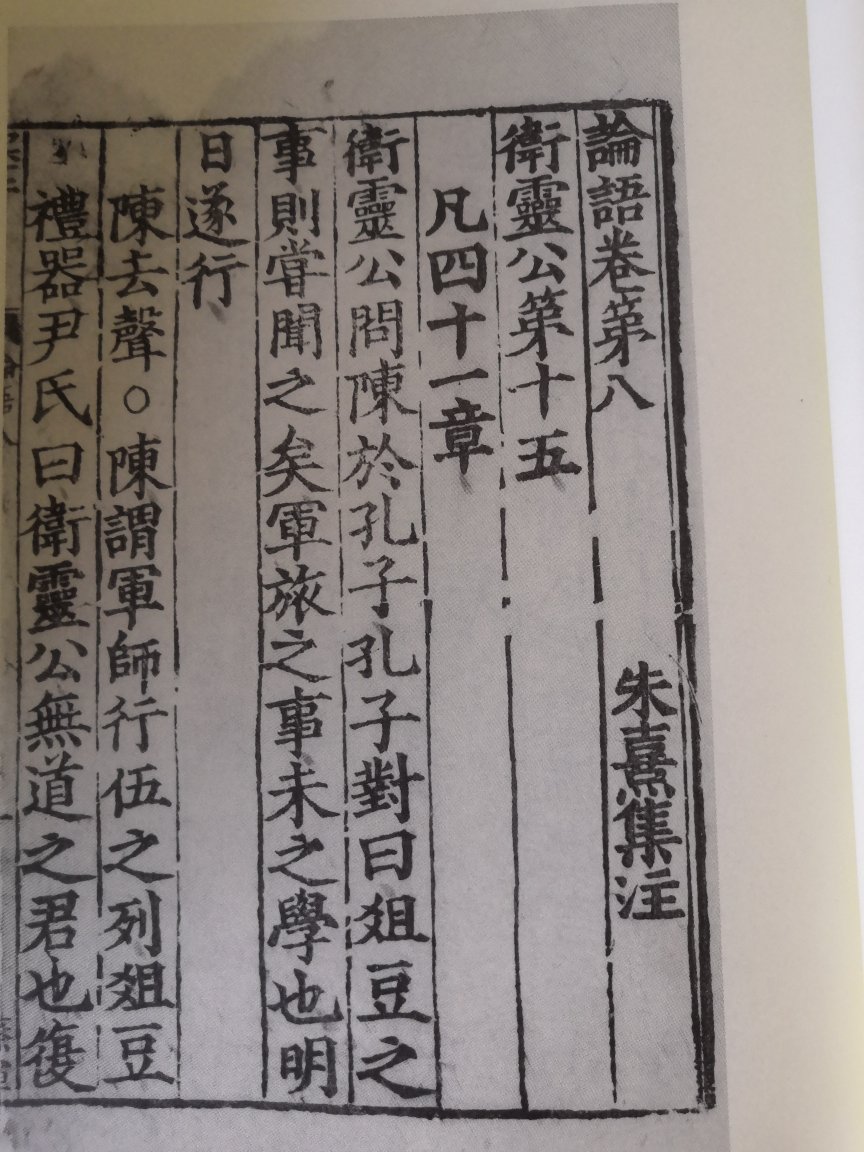 論語卷第八
朱熹集注
衛靈公第十五
凡四十一章
衛靈公問陳於孔子孔子對曰俎豆之
事則嘗聞之矣軍旅之事未之學也明
日遂行
陳去聲○陳謂軍師行伍之列俎豆
禮器尹氏曰衛靈公無道之君也復